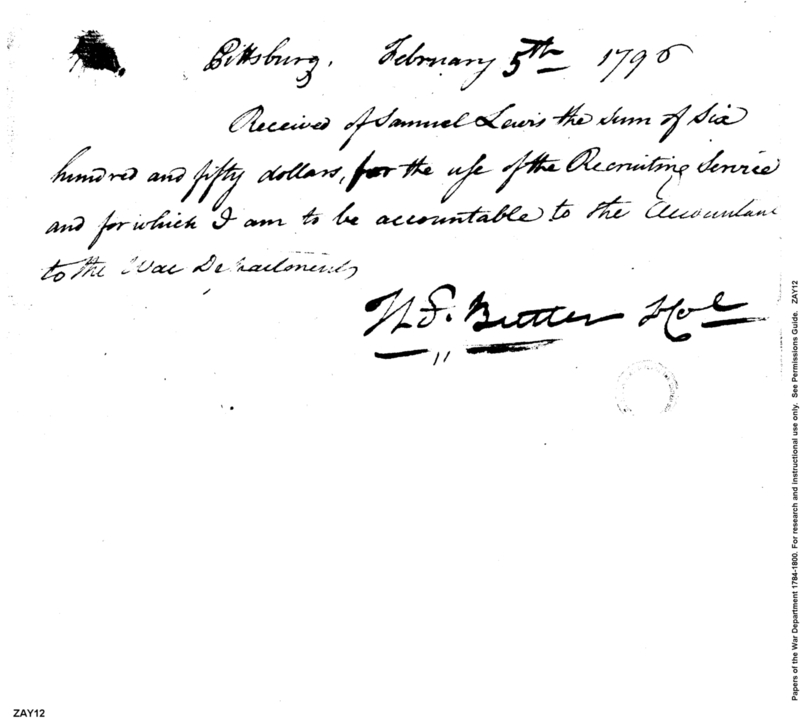 Pittsburg, February 5th 1796
Received of Samuel Lewis the sum of Six
hundred and fifty dollars, for the use of the Recruiting Service
and for which I am to be accountable to the Accountant
to the War Department
Butler
Papers of the War Department 1784-1800. For research and instructional use only. See Permissions Guide. ZAY12
ZAY12